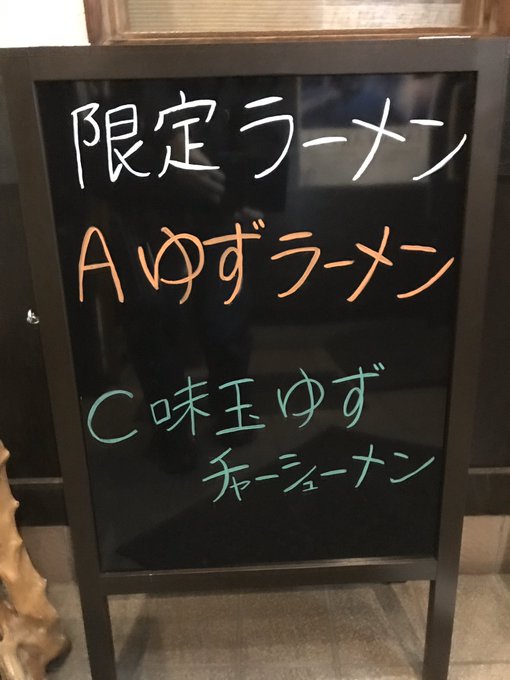 限定ラーメン
Aゆずラーメン
C味玉ゆず
チャーシューメン